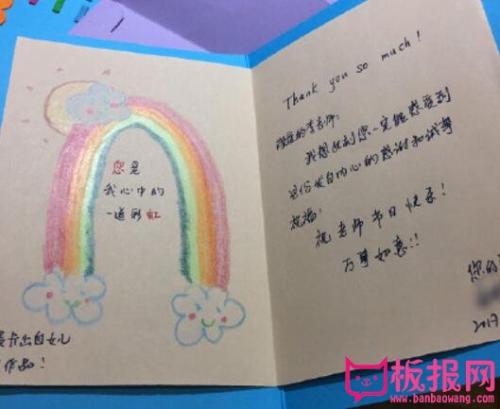 您是
我心中的
一道彩虹
卡出自女儿
作品!
Thank you so much!
的李老师:
我想此刻您一定能感受到
这份发自内心的感谢和
祝福:
祝老师节日快乐!
万事如意!!
您的
2017
板报网
www.banbaowang.com